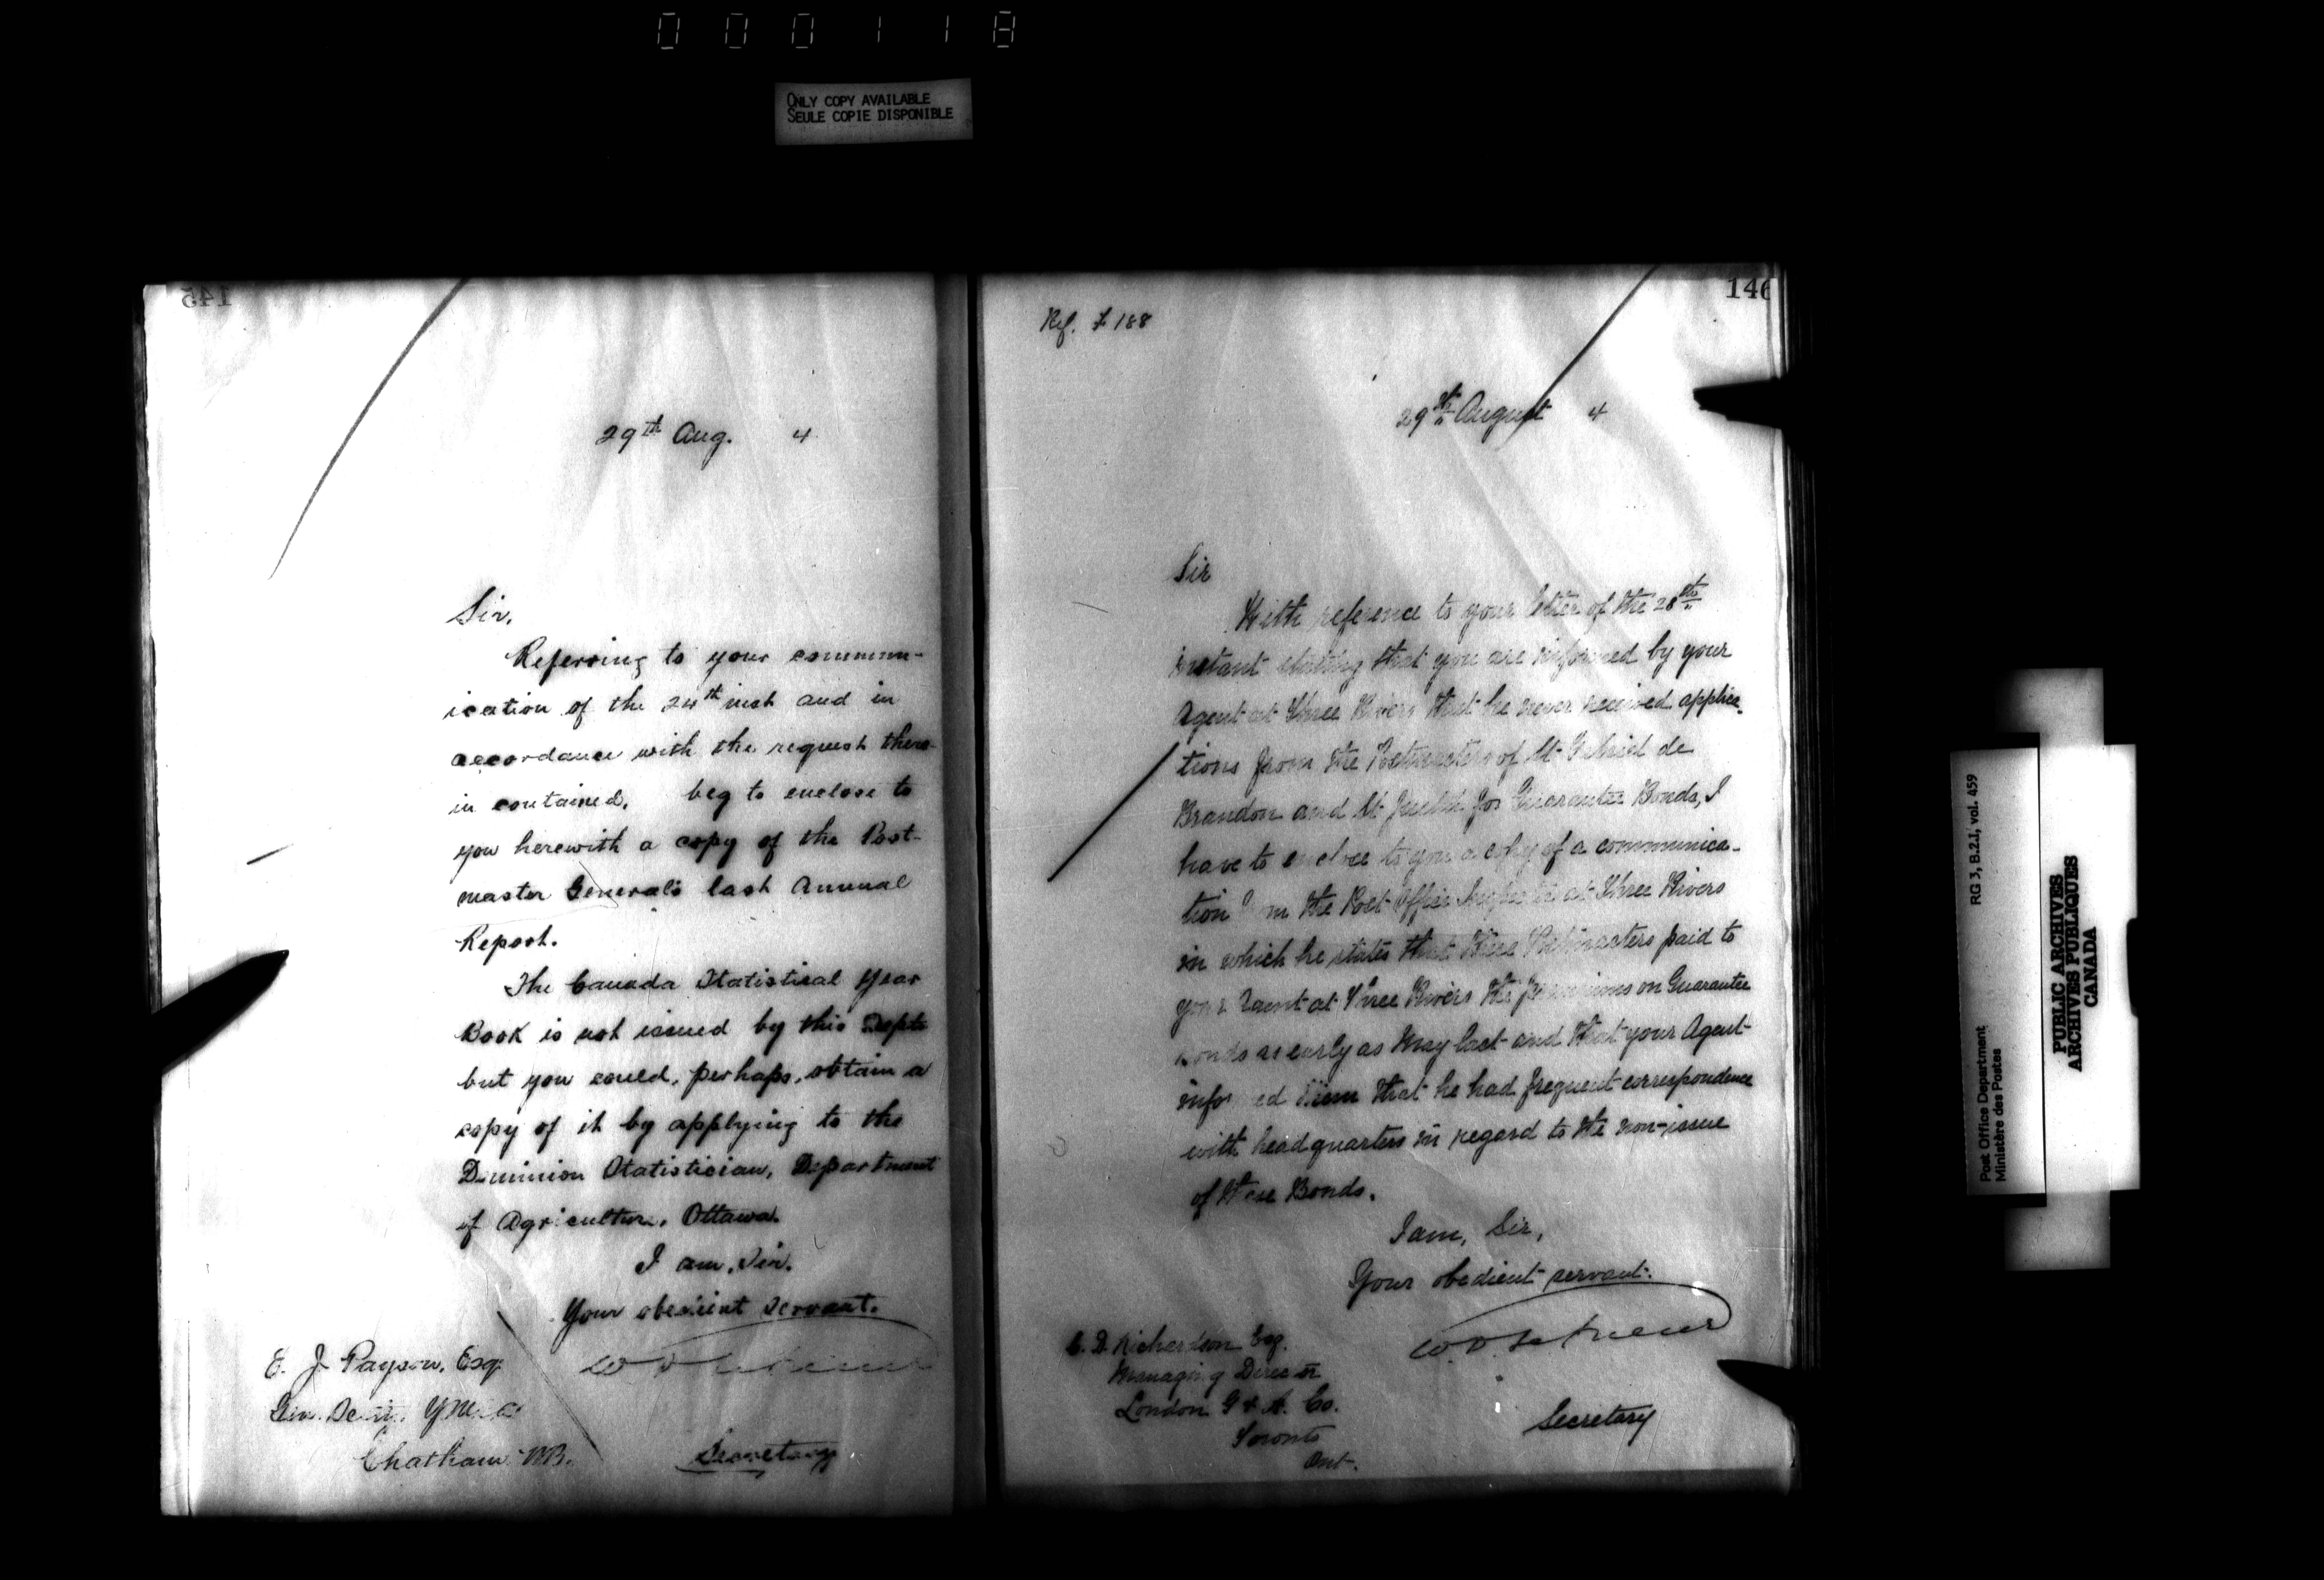 000118
ONLY COPY AVAILABLE
SEULE COPIE DISPONIBLE
145
29th Aug. 4
Sir,
Referring to your commun-
ication of the 24th inst and in
accordance with the request there-
in contained, beg to enclose to
you herewith a copy of the Post-
master General's last Annual
Report.
The Canada Statistical Year
Book is not issued by this Dept
but you could, perhaps, obtain a
copy of it by applying to the
Dominion Statistician, Department
of Agriculture, Ottawa.
I am, Sir.
Your obedient servant.
E. J. Payson, Esq.
Chatham NB.
Secretary
146
Ref. F 188
29th August 4
Sir
With reference to your letter of the 28th
instant stating that you are informed by your
Agent at Three Rivers that he never received applica-
tions from the Postmasters of St Gabriel de
Brandon and St for Guarantee Bonds, I
have to enclose to you a copy of a communica-
tion from the Post Office Inspector at Three Rivers
in which he states that these Postmasters paid to
your Agent at Three Rivers the premiums on Guarantee
Bonds as early as May last and that your Agent
informed him that he had frequent correspondence
with headquarters in regard to the non-issue
of these Bonds.
I am, Sir,
Your obedient servant.
Secretary
C. D. Richardson Esq.
Managing Director
London G & A. Co.
Toronto
Ont.
RG 3, B.2.I, vol. 459
Post Office Department
Ministère des Postes
PUBLIC ARCHIVES
ARCHIVES PUBLIQUES
CANADA